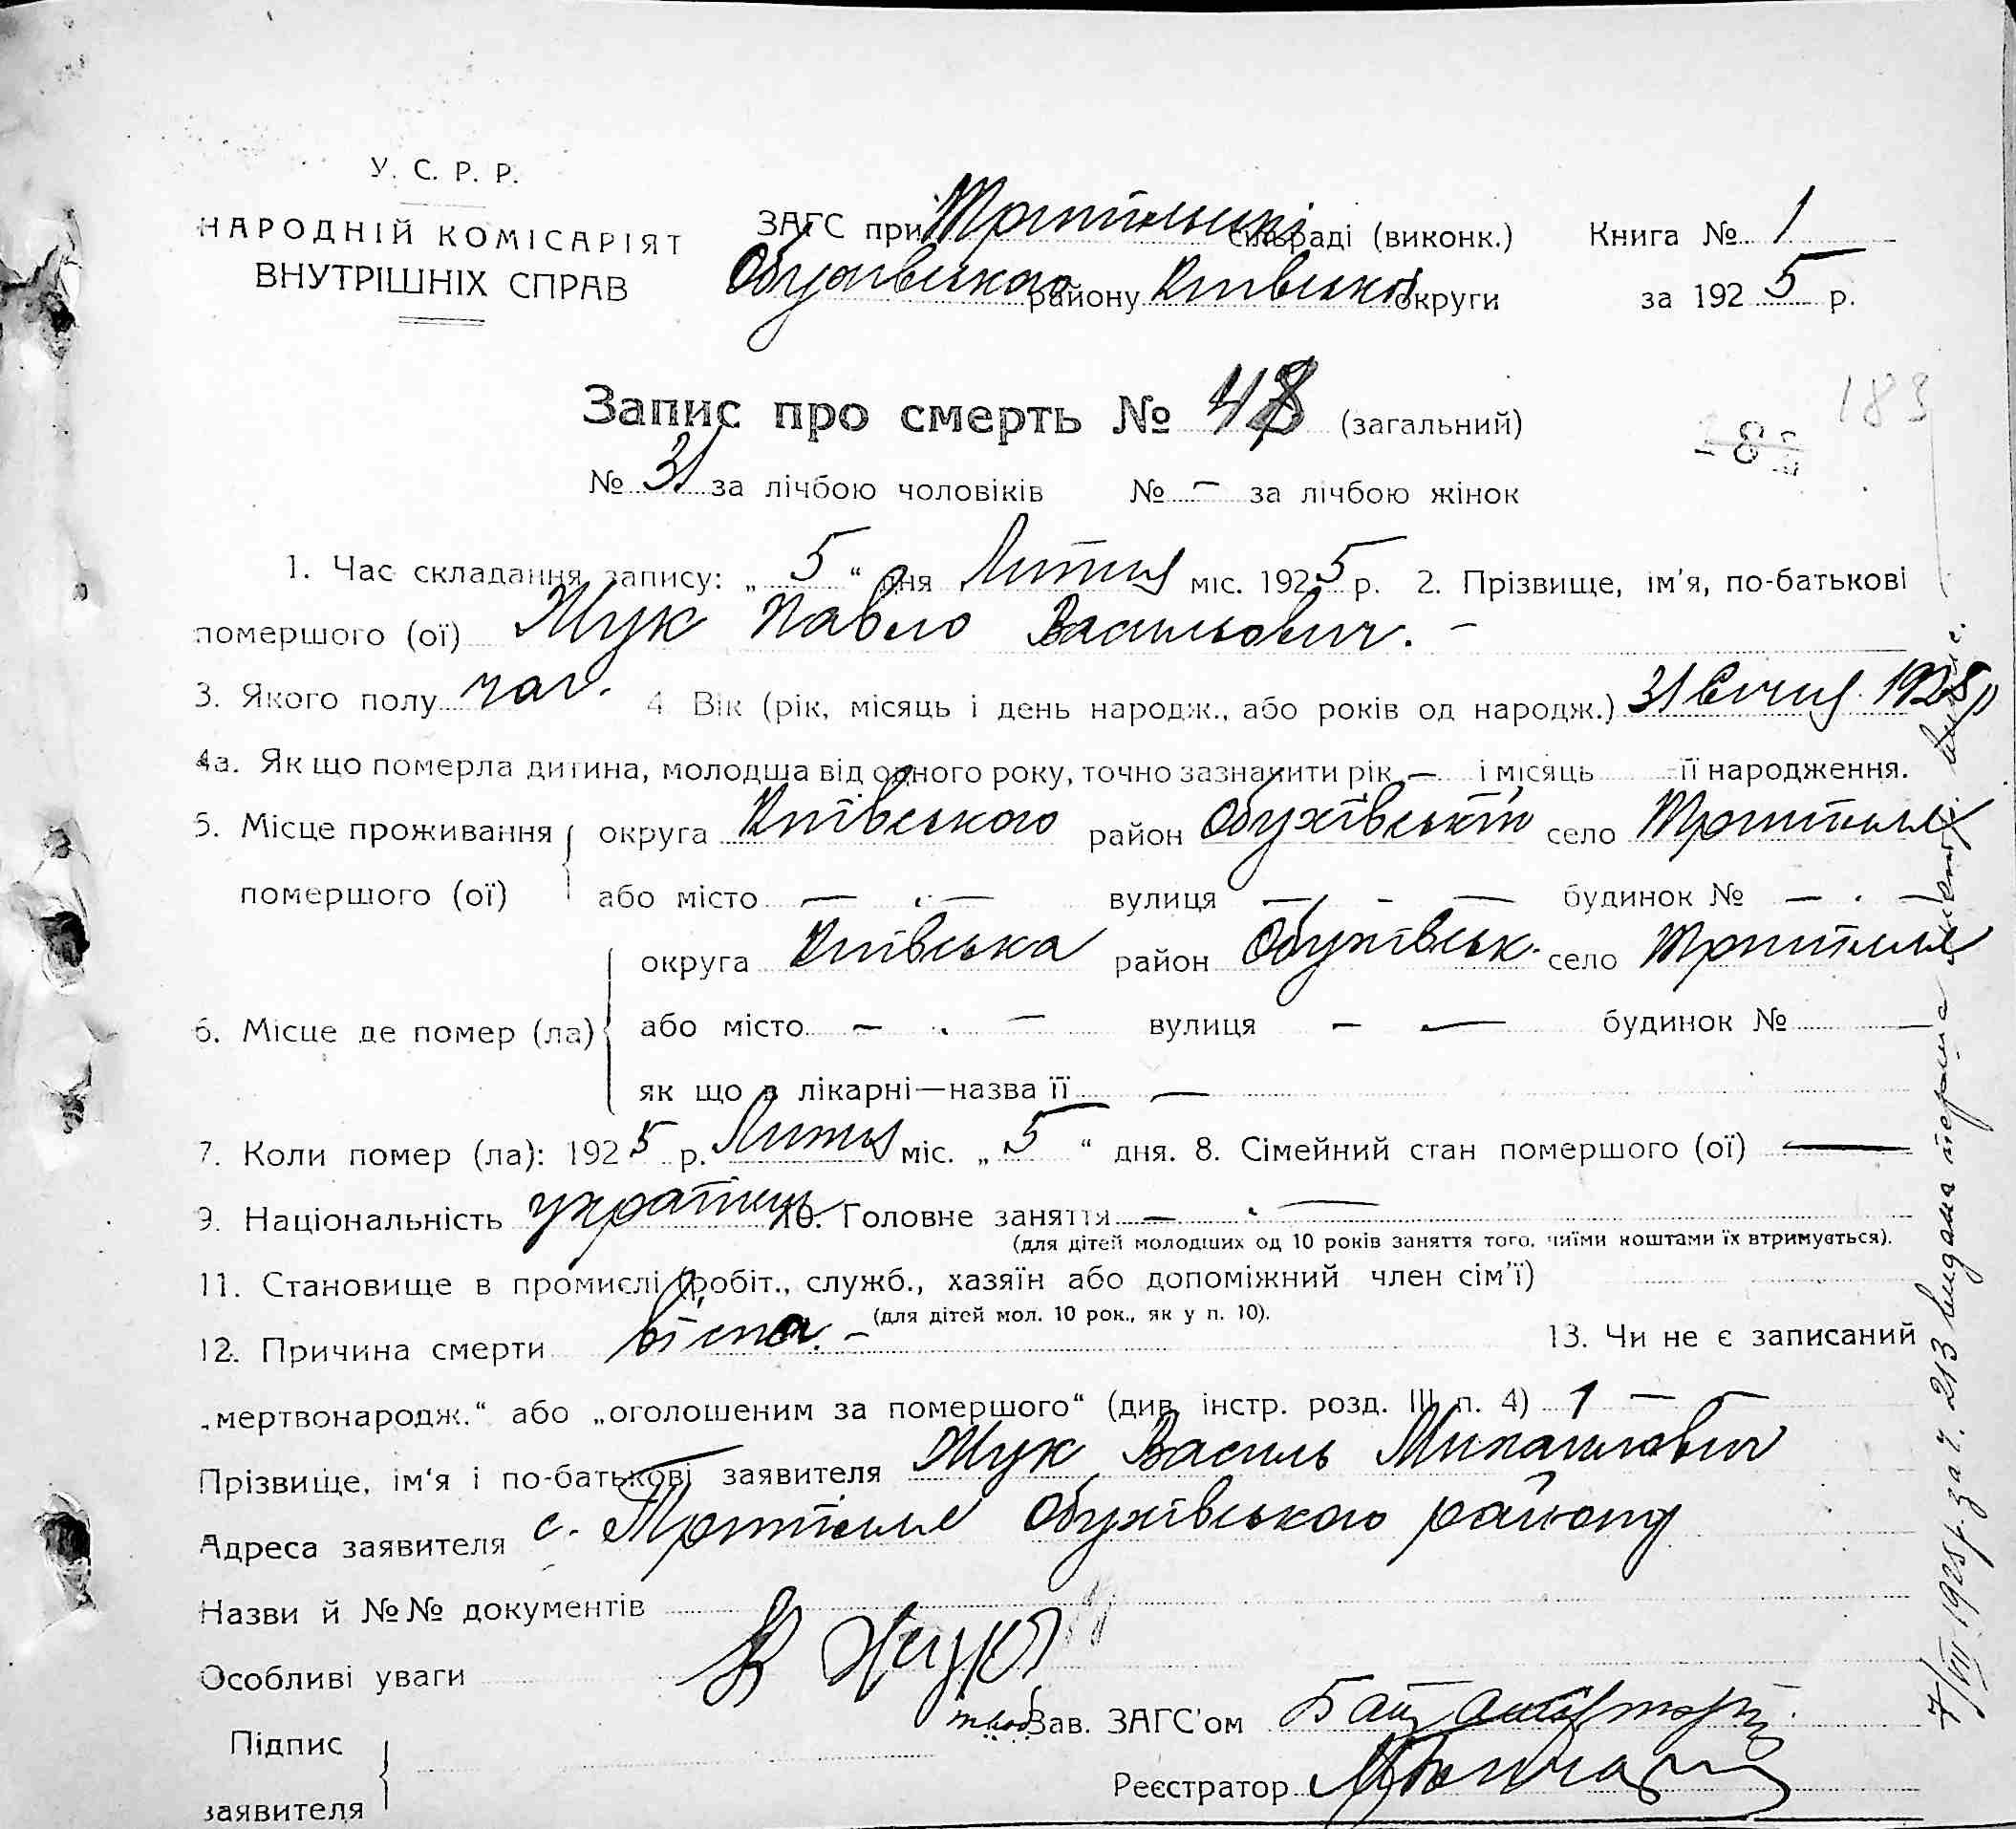 У. С. Р. Р.
НАРОДНІЙ КОМІСАРІЯТ
ВНУТРІШНІХ СПРАВ
ЗАГС при Трипільській сільраді (виконк.) Книга № 1
Обухівського району Київської округи за 1925 р.
Запис про смерть № 48 (загальний)
183
№ 31 за лічбою чоловіків № — за лічбою жінок
1. Час складання запису: „ 5 “ дня Лютня міс. 1925 р. 2. Прізвище, ім'я, по-батькові
помершого (ої) Жук Павло Васильович. —
3. Якого полу чол. 4 Вік (рік, місяць і день народж., або років од народж.) 31 Січня 1925 р
4а. Як що померла дитина, молодша від одного року, точно зазначити рік — і місяць її народження.
5. Місце проживання округа Київського район Обухівський село Трипілля
помершого (ої) або місто — . — вулиця — - — будинок № — . —
округа Київська район Обухівськ. село Трипілля
6. Місце де помер (ла) або місто — . — вулиця — — будинок № —
як що в лікарні—назва її —
7. Коли помер (ла): 1925 р. Лютня міс. „ 5 “ дня. 8. Сімейний стан помершого (ої) —
9. Національність українець 10. Головне заняття — . —
(для дітей молодших од 10 років заняття того, чиїми коштами їх втримується).
11. Становище в промислі (робіт., служб., хазяїн або допоміжний член сім'ї)
(для дітей мол. 10 рок., як у п. 10).
12. Причина смерти віспа. — 13. Чи не є записаний
„мертвонародж.“ або „оголошеним за помершого“ (див. інстр. розд. III п. 4) 1 —
Прізвище, ім'я і по-батькові заявителя Жук Василь Михайлович
Адреса заявителя с. Трипілля Обухівського району
Назви й №№ документів
Особливі уваги В Жук
Зав. ЗАГС'ом
Підпис
заявителя
Реєстратор
7/VII 1925 р. за ч. 213 видана перша